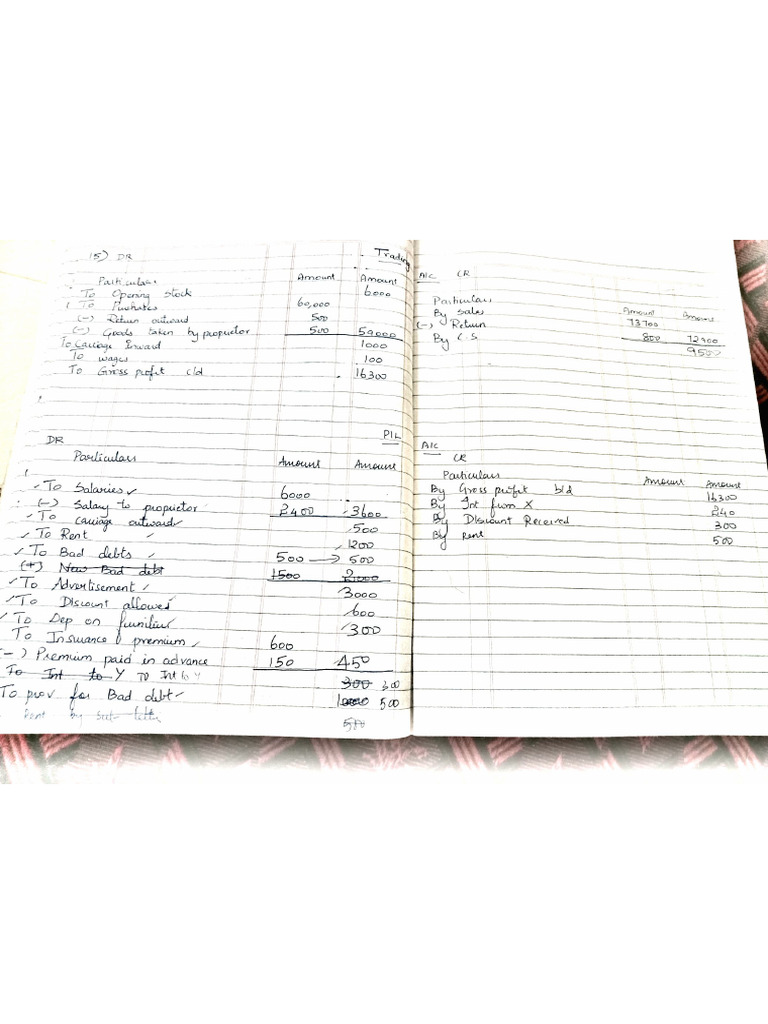 15) DR Trading
Particulars Amount Amount
To Opening stock 6000
To Purchases 60,000
(-) Return outward 500
(-) Goods taken by proprietor 500 59000
To Carriage Inward 1000
To wages 100
To Gross profit c/d 16300
DR P/L
Particulars Amount Amount
To Salaries 6000
(-) Salary to proprietor 2400 3600
To carriage outward 500
To Rent 1200
To Bad debts 500 → 500
(+) New Bad debt 1500 2,000
To Advertisement 3000
To Discount allowed 600
To Dep on furnitur 300
To Insurance premium 600
(-) Premium paid in advance 150 450
To Int to Y To Int to Y 300 300
To prov for Bad debt 1000 500
Rent by 500
A/C CR
Particulars Amount Amount
By Sales 73700
(-) Return 800 72900
By C.S 9500
A/C
CR
Particulars Amount Amount
By Gross profit b/d 16300
By Int from X 240
By Discount Received 300
By Rent 500